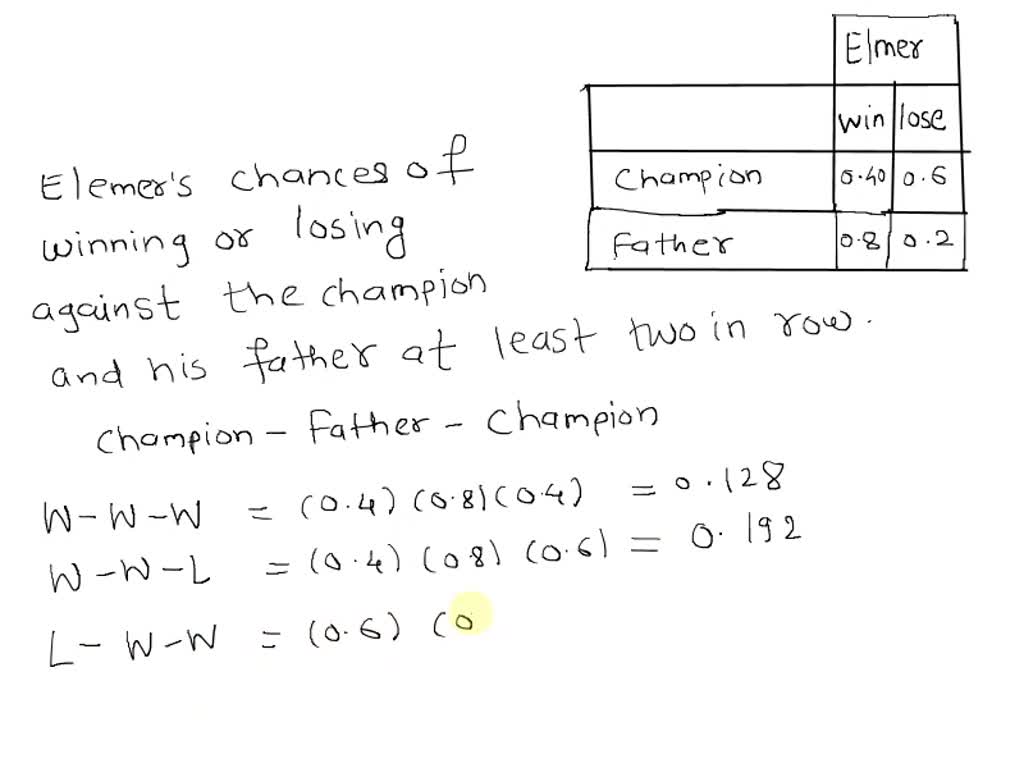 Elmer
win lose
Champion 0.40 0.6
Father 0.8 0.2
Elemer's chances of
winning or losing
against the champion
and his father at least two in row.
Champion - Father - Champion
W-W-W = (0.4) (0.8) (0.4) = 0.128
W-W-L = (0.4) (0.8) (0.6) = 0.192
L-W-W = (0.6) (0